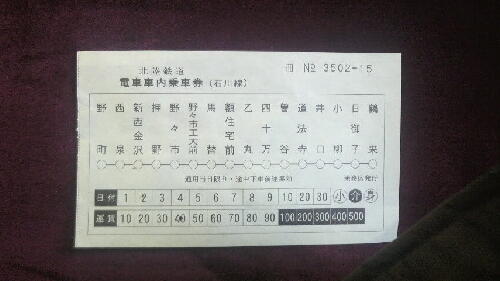 北陸鉄道
冊 № 3502-15
電車車内乗車券(石川線)
野町
西泉
新西金沢
押野
野々市
野々市工大前
馬替
額住宅前
乙丸
四十万
曽谷
道法寺
井口
小柳
日御子
鶴来
通用当日限り・途中下車前途無効 乗務区発行
日付 1 2 3 4 5 6 7 8 9 10 20 30 小 介 身
運賃 10 20 30 40 50 60 70 80 90 100 200 300 400 500